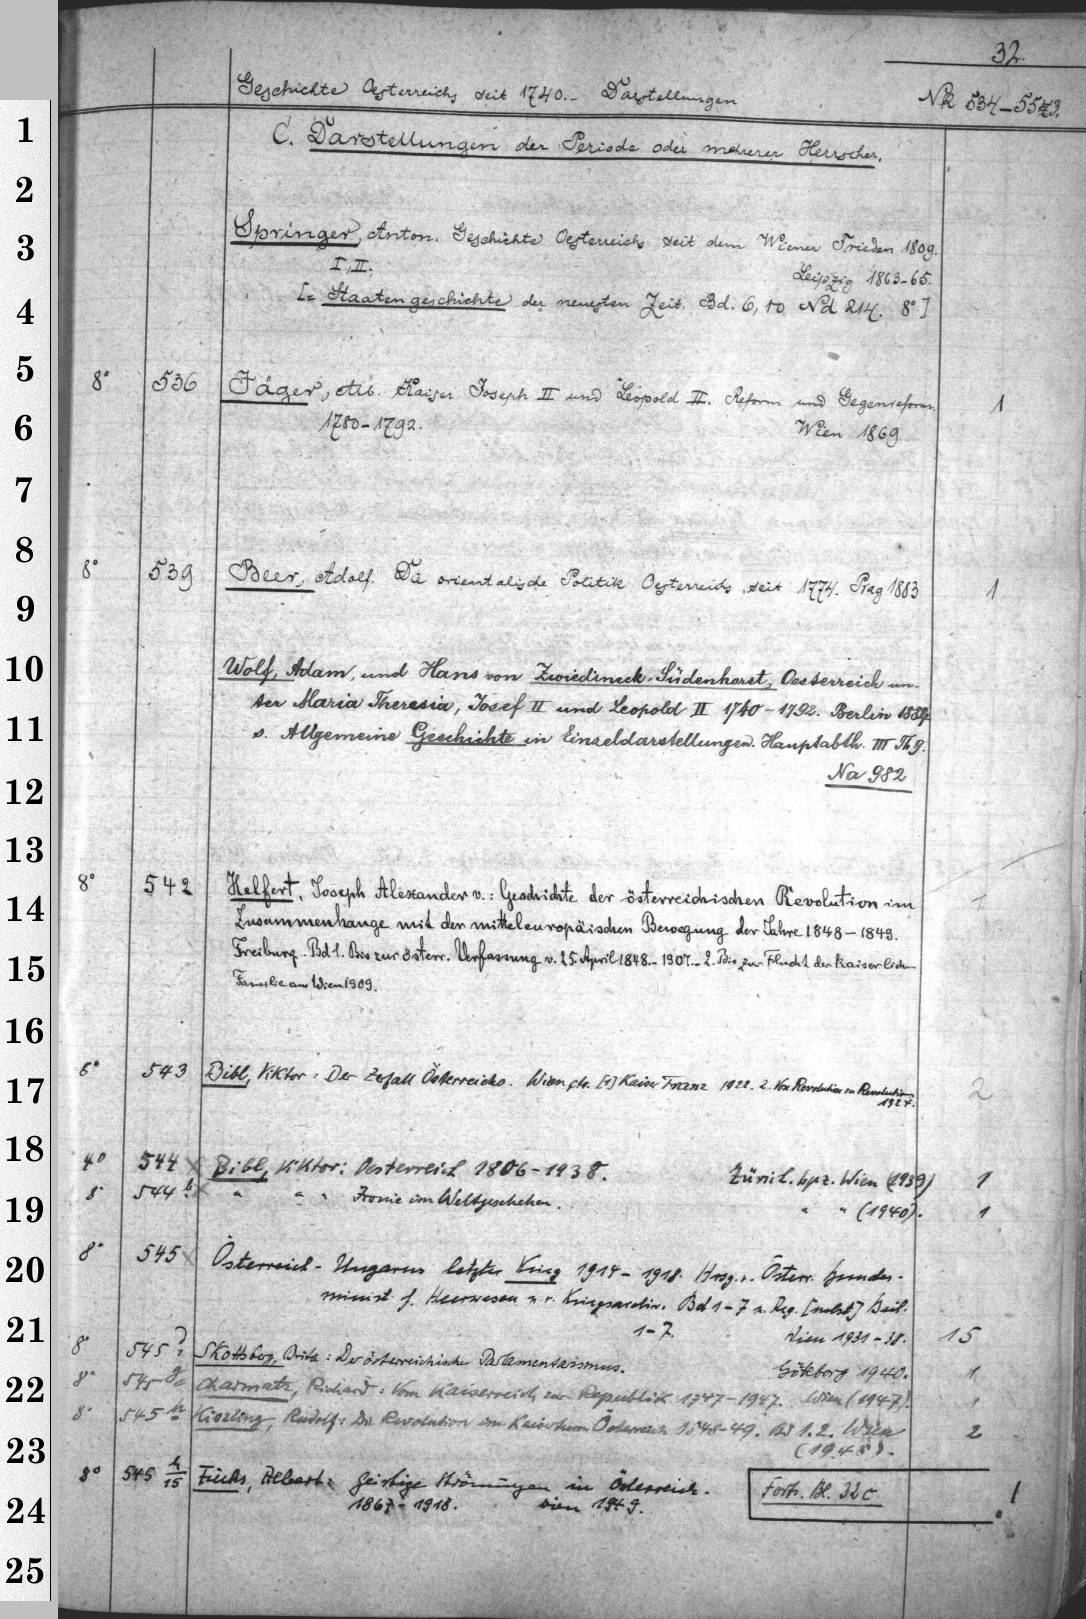 32.
Geschichte Oesterreichs seit 1740.- Darstellungen Nk 534-55
C. Darstellungen der Periode oder mehrerer Herrscher.
Springer, Anton. Geschichte Oesterreichs seit dem Wiener Frieden 1809.
I, II. Leipzig 1863-65.
[= Staatengeschichte der neuesten Zeit. Bd. 6, 10 Nd 214. 8°]
8° 536 Jäger, Alb. Kaiser Joseph II und Leopold II. Reform und Gegenreform. 1
1780-1792. Wien 1869
8° 539 Beer, Adolf. Die orientalische Politik Oesterreichs seit 1774. Prag 1883 1
Wolf, Adam, und Hans von Zwiedineck-Südenhorst, Oesterreich un-
ter Maria Theresia, Josef II und Leopold II 1740-1792. Berlin
s. Allgemeine Geschichte in Einzeldarstellungen. Hauptabth. III Th 9.
Na 982
8° 542 Helfert, Joseph Alexander v.: Geschichte der österreichischen Revolution im
Zusammenhange mit der mitteleuropäischen Bewegung der Jahre 1848-1849.
Freiburg. Bd 1. Bis zur österr. Verfassung v. 25. April 1848.- 1907.- 2. Bis zur Flucht der kaiserlichen
Familie aus Wien 1909.
8° 543 Bibl, Viktor: Der Zerfall Österreichs. Wien etc. [1] Kaiser Franz 1922. 2. Von Revolution zu Revolution 2
1924.
4° 544 Bibl, Viktor: Oesterreich 1806-1938. Zürich. Lpz. Wien (1939) 1
8° 544 b " " " Ironie im Weltgeschehen. " " (1940). 1
8° 545 Österreich-Ungarns letzter Krieg 1914-1918. Hrsg. v. Österr. Bundes-
minist. f. Heerwesen u. v. Kriegsarchiv. Bd 1-7 u. Reg. [nebst] Beil.
1-7. Wien 1931-38. 15
8° 545 ? Skottsberg, Brita: Der österreichische Parlamentarismus. Göteborg 1940. 1
8° 545 g Charmatz, Richard: Vom Kaiserreich zur Republik 1747-1947. Wien (1947). 1
8° 545 h Kiszling, Rudolf: Die Revolution im Kaisertum Österreich 1848-49. Bd 1.2. Wien 2
(1948).
8° 545 h/15 Fuchs, Albert: Geistige Strömungen in Österreich.
1867-1918. Wien 1949. Forts. Bl. 32c. 1
1
2
3
4
5
6
7
8
9
10
11
12
13
14
15
16
17
18
19
20
21
22
23
24
25